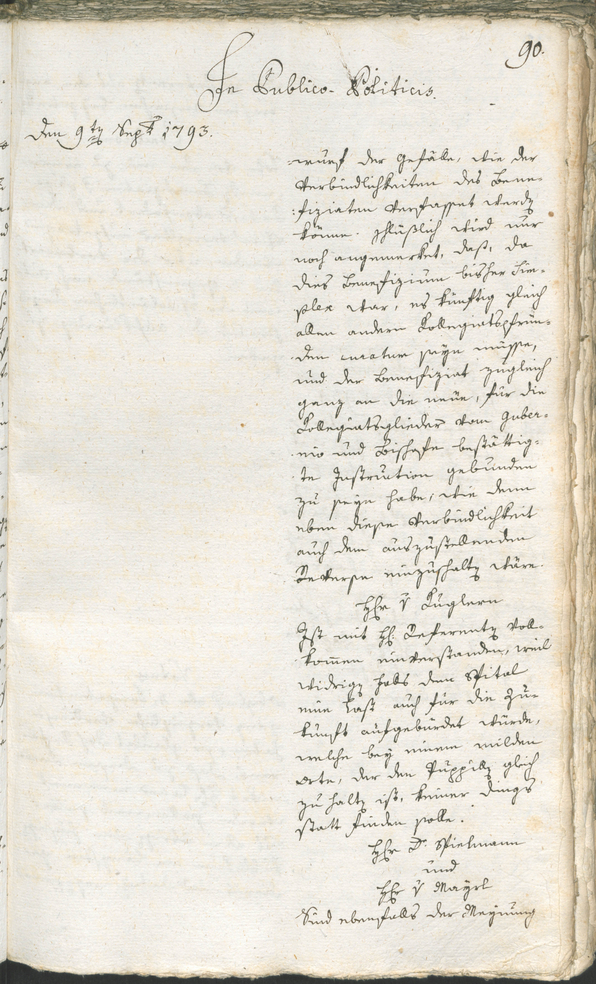 90.
In Publico-Politicis.
Den 9ten Sept. 1793.
wurf der Gefälle, wie der
Verbindlichkeiten des Bene-
fiziaten verfasset werden
könne. Schlüßlich wird nur
noch angemerket, daß, da
dies Benefizium bisher Sim-
plex war, es künftig gleich
allen andern Kollegiatspfrün-
den curatum seyn müsse,
und der Benefiziat zugleich
ganz an die neüe, für die
Kollegiatsglieder vom Guber-
nio und Bischofe bestättig-
te Instruction gebunden
zu seyn habe, wie denn
eben diese Verbindlichkeit
auch dem auszustellenden
Reverse einzuschalten wäre.
Hhr v Kuglern
Ist mit H: Referenten voll-
kommen einverstanden, weil
widrigen falls dem Spital
eine Last auch für die Zu-
kunft aufgebürdet würde,
welche bey einem milden
Orte, der den Puppillen gleich
zu halten ist, keiner dings
statt finden solle.
Hhr D. Spielmann
und
Hhr v Mayrl
Sind ebenfalls der Meynung